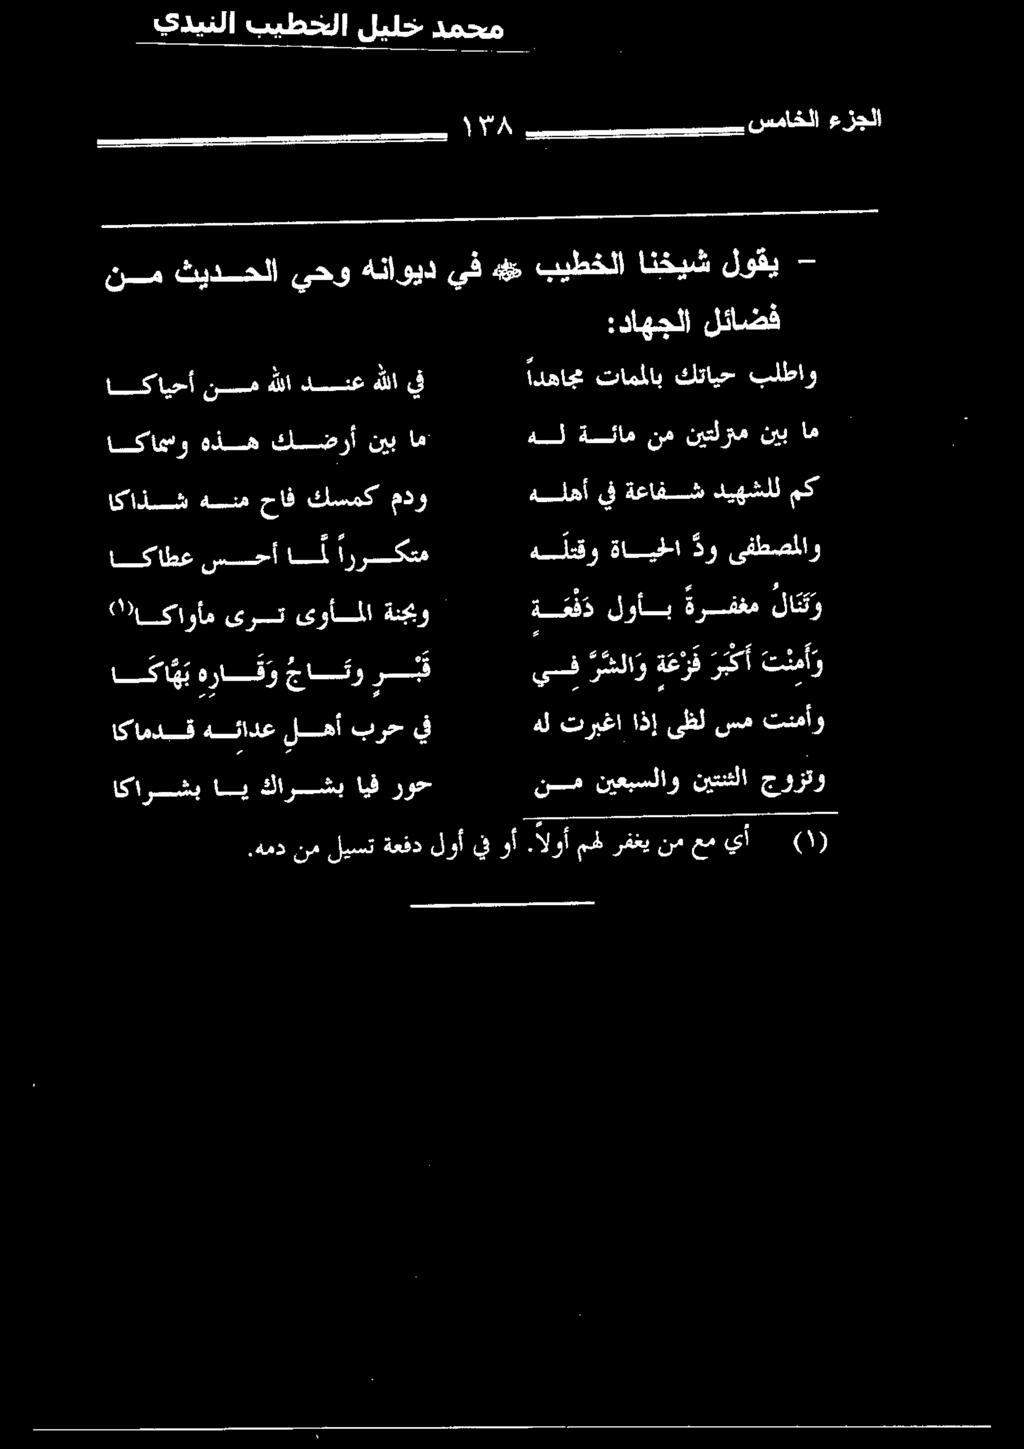 محمد خليل الخطيب النيدي
الجزء الخامس ١٣٨
- يقول شيخنا الخطيب ﵁ في ديوانه وحي الحديث من
فضائل الجهاد:
واطلب حياتك بالممات مجاهداً في الله عند الله من أحياكا
ما بين منزلتين من مائة له ما بين أرضك هذه وسماكا
كم للشهيد شفاعة في أهله ودم كمسك فاح منه شذاكا
والمصطفى ودَّ الحياة وقتلَه متكرراً لمَّا أحس عطاكا
وَتَنَالُ مغفرةً بأول دَفْعَةٍ وبجنة المأوى ترى مأواكا(١)
وَأَمِنْتَ أَكْبَرَ فَزْعَةٍ وَالشَّرَّ فِي قَبْرٍ وَتَاجُ وَقَارِهِ بَهَّاكَا
وأمنت مس لظى إذا اغبرت له في حرب أهلِ عدائِه قدماكا
وتزوج الثنتين والسبعين من حور فيا بشراك يا بشراكا
(١) أي مع من يغفر لهم أولاً. أو في أول دفعة تسيل من دمه.